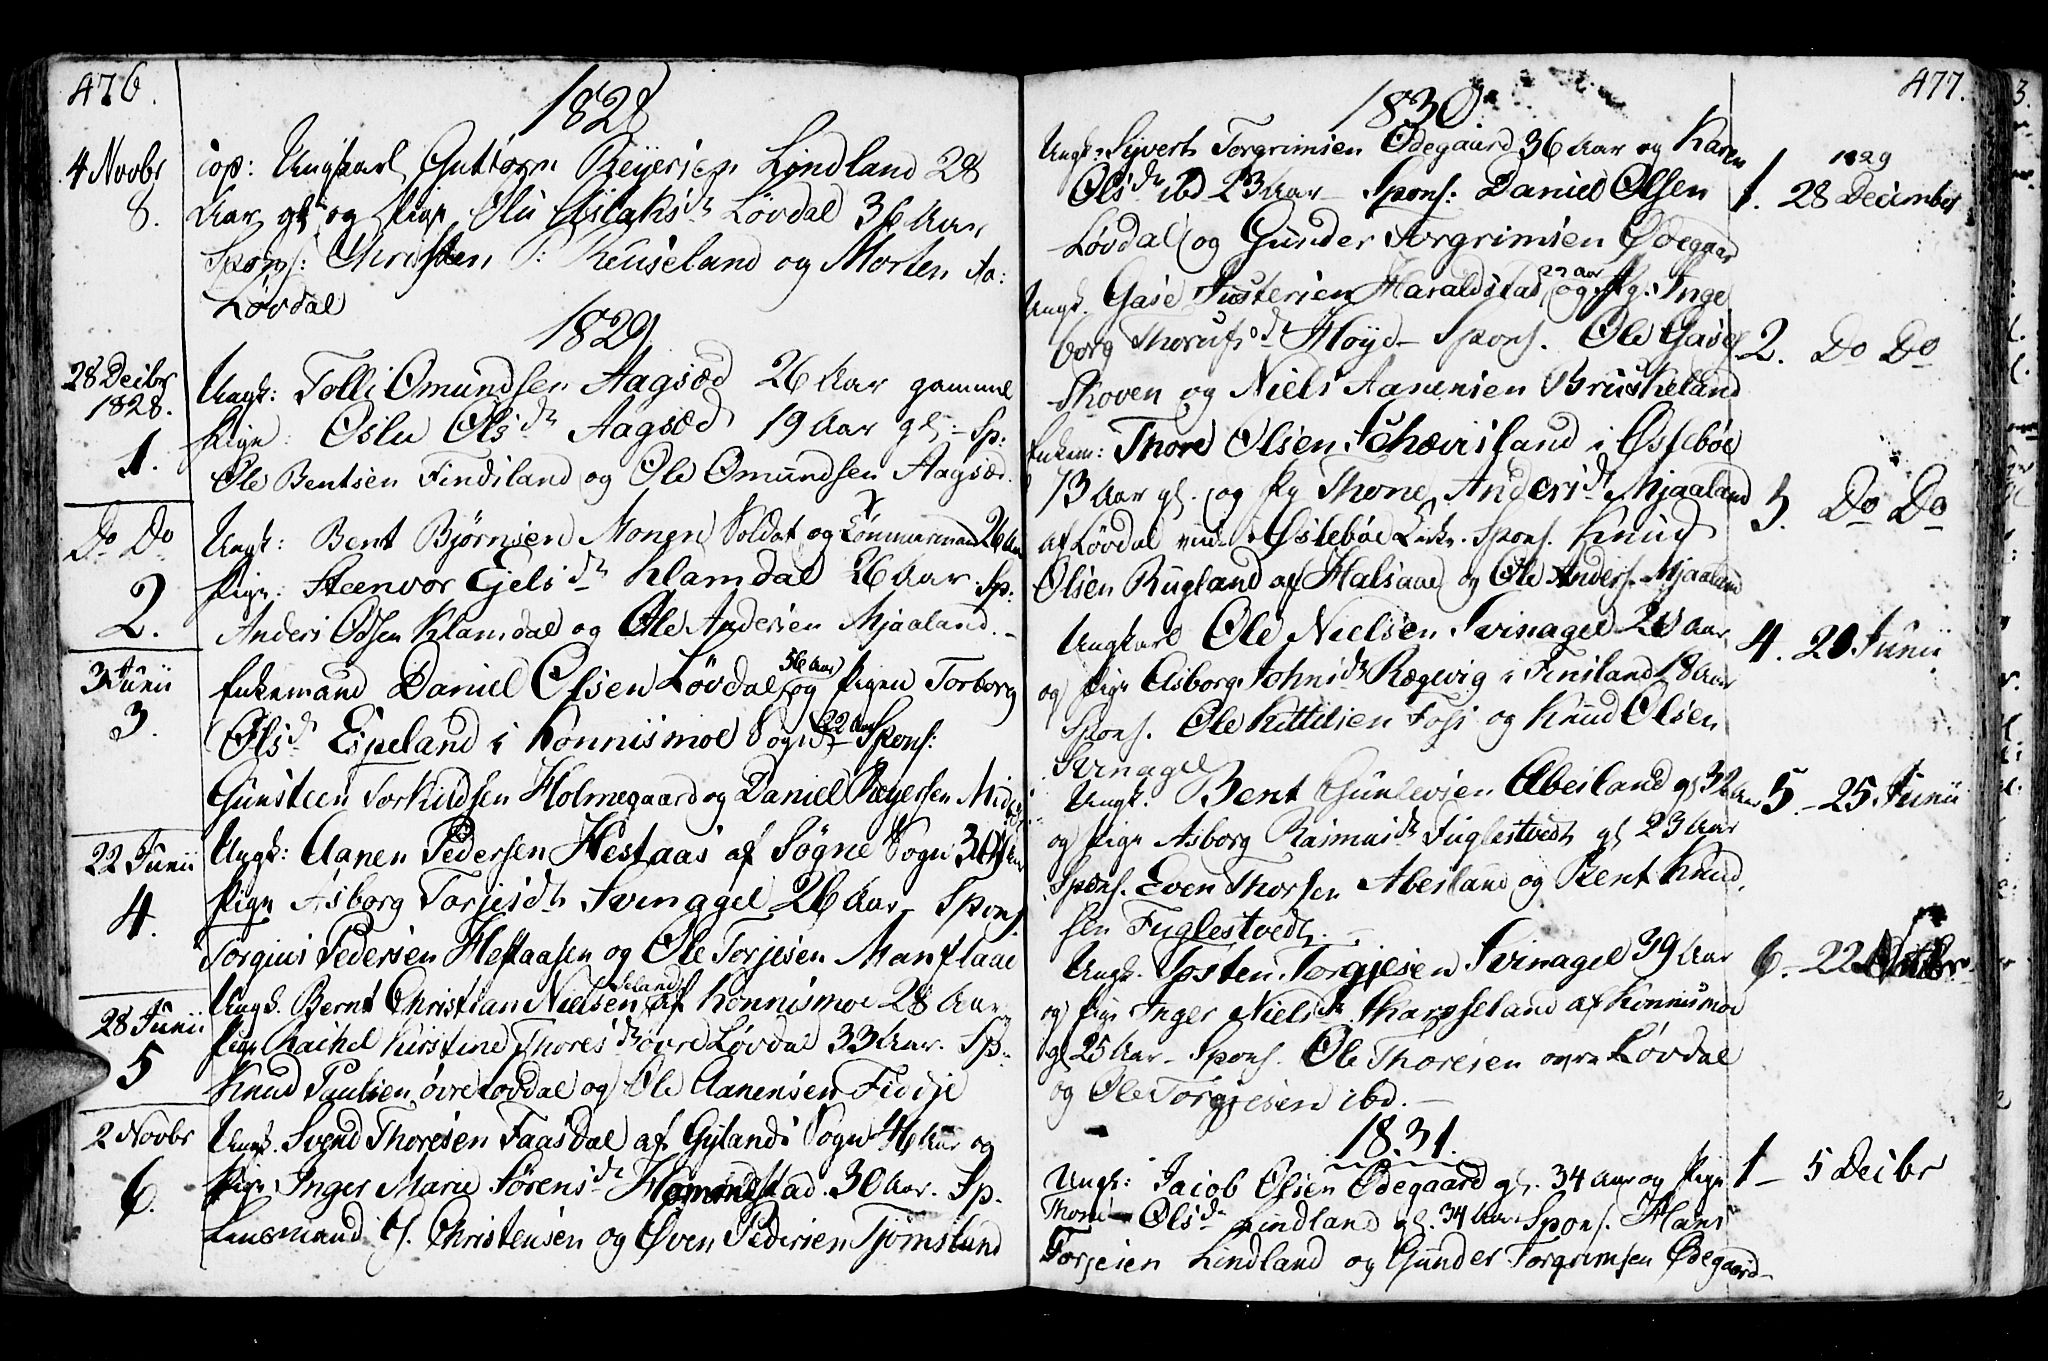 476.
1828
4 Novbr
8.
cop: Ungkarl Guttorm Reyersen Lindland 28
Aar gl og Pige Aslaksdr Løvdal 36 Aar
Spons: Christen P: Keuseland og Morten Aa:
Løvdal
1829
28 Decbr
1828.
1.
Ungk: Tolli Omundsen Aagsæd 26 Aar gammel
Pige: Oslu Olsdr Aagsæd 19 Aar gl: - Sp:
Ole Bentsen Findsland og Ole Omundsen Aagsæd.
Do Do
2.
Ungk: Bent Bjørnsen Monen Soldat og Tømmermand 26 Aar
Pige: Steenvor Ejelsdr Klamdal 26 Aar. Sp:
Anders Odsen Klamdal og Ole Andersen Mjaaland. -
3 Junii
3.
Enkemand Daniel Olsen Løvdal 56 Aar og Pigen Torborg
Olsdr Espeland i Konnismoe Sogn 22 Aar - Spons:
Gunsteen Torkildsen Holmegaard og Daniel Reyersen
22 Junii
4.
Ungk: Aanen Pedersen Hestaas af Søgne Sogn 30 Aar
Pige Asborg Torjesdr Svinagel 26 Aar - Spons
Torgius Pedersen Hestaasen og Ole Torjesen Manflaae
28 Junii
5
Ungk. Bernt Christian Nielsen Seland af Konnismoe 28 Aar
Pige Rachel Kirstine Thoresdr øvre Løvdal 33 Aar. Sp:
Knud Paulsen øvre Løvdal og Ole Aanensen Fiddje
2 Novbr
6.
Ungk. Svend Thoresen Faasdal af Gylands Sogn 46 Aar og
Pige Inger Marie Sørensdr Homindstad 30 Aar. Sp.
Lensmand J. Christensen og Øven Pedersen Tjomsland
477.
1830.
Ungk: Sivert Torgrimsen Ødegaard 36 Aar og Karen
Olsdr ibd 23 Aar - Spons: Daniel Olsen
Løvdal og Gunder Torgrimsen Ødegaar
1829
1. 28 December
Ungk. Gase Justersen Haraldstad 22 Aar og Pg. Inge
borg Thorufsdr Høyd - Spons. Ole Gases
Skoven og Niels Aanensen Bruskeland
2. Do Do
Enkem: Thore Olsen Schævisland i Øslebøe
73 Aar gl. og Pg Thone Andersdr Mjaaland
af Løvdal i Øslebøe Spons. Knud
Olsen Rugland af Halsaae og Ole Anders. Mjaaland
3. Do Do
Ungkarl Ole Nielsen Svinagel 28 Aar
og Pige Asborg Johnsdr Rægevig i Finsland 18 Aar
Spons. Ole Kittilsen Foss og Knud Olsen
Svinagel
4. 20 Junii
Ungk. Bent Gunlevsen Abesland gl 32 Aar
og Pige Asborg Rasmusdr Fuglestvedt gl 23 Aar
Spons. Even Thorsen Abesland og Bent Knud
sen Fuglestvedt. -
5 - 25 Junii
Ungk. Josten Torgjesen Svinagel 39 Aar
og Pige Inger Nielsdr Skarpseland af Konnismoe
gl 25 Aar - Spons. Ole Thoresen øvre Løvdal
og Ole Torgjesen ibd. -
6. - 22
1831.
Ungk: Jacob Olsen Ødegaard gl. 34 Aar og Pige
Thone Olsdr Lindland gl. 34 Aar Spons. Hans
Torjesen Lindland og Gunder Torgrimsen Ødegaard -
1 - 5 Decbr